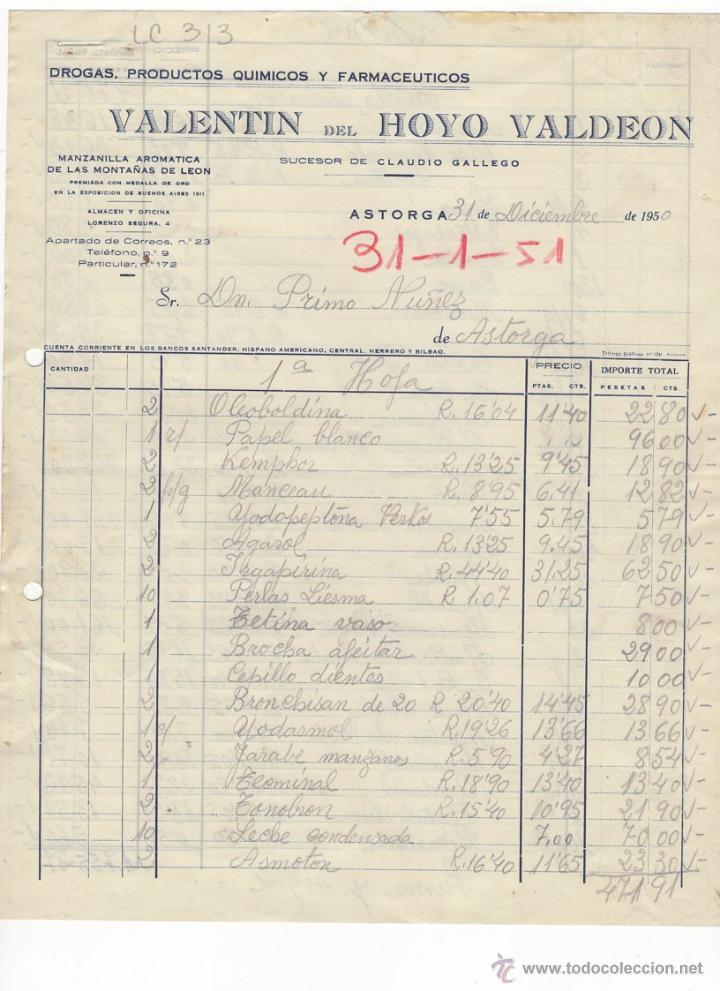 LC 313
DROGAS, PRODUCTOS QUIMICOS Y FARMACEUTICOS
VALENTIN DEL HOYO VALDEON
SUCESOR DE CLAUDIO GALLEGO
MANZANILLA AROMATICA
DE LAS MONTAÑAS DE LEON
PREMIADA CON MEDALLA DE ORO
EN LA EXPOSICION DE BUENOS AIRES 1911
ALMACEN Y OFICINA
LORENZO SEGURA, 4
Apartado de Correos, n.º 23
Teléfono, n.º 9
Particular, n.º 172
ASTORGA 31 de Diciembre de 1950
31-1-51
Sr. Dn. Primo Nuñez
de Astorga
CUENTA CORRIENTE EN LOS BANCOS SANTANDER, HISPANO AMERICANO, CENTRAL, HERRERO Y BILBAO.
CANTIDAD 1ª Hoja PRECIO PTAS. CTS. IMPORTE TOTAL PESETAS CTS.
2 Oleoboldina R. 16'04 11'40 22 80
1 r/ Papel blanco 96 00
2 Kemphor R. 13'25 9'45 18 90
2 p/g Manceau R. 8'95 6.41 12 82
1 Yodopeptona 7'55 5.79 5 79
2 Agarol R. 13'25 9.45 18 90
2 Irgapirina R. 44'40 31.25 62 50
10 Perlas Liesma R 1.07 0'75 7 50
1 Tetina vaso 8 00
1 Brocha afeitar 29 00
1 Cepillo dientes 10 00
2 Bronchisan de 20 R 20'40 14'45 28 90
1 Yodasmol R. 19'26 13'66 13 66
2 Jarabe manzanos R. 5'90 4'27 8 54
1 Teominal R. 18'90 13'40 13 40
2 Tonobron R. 15'40 10'95 21 90
10 Leche condensada 7.00 70 00
2 Asmoton R. 16'40 11'65 23 30
471 91
www.todocoleccion.net